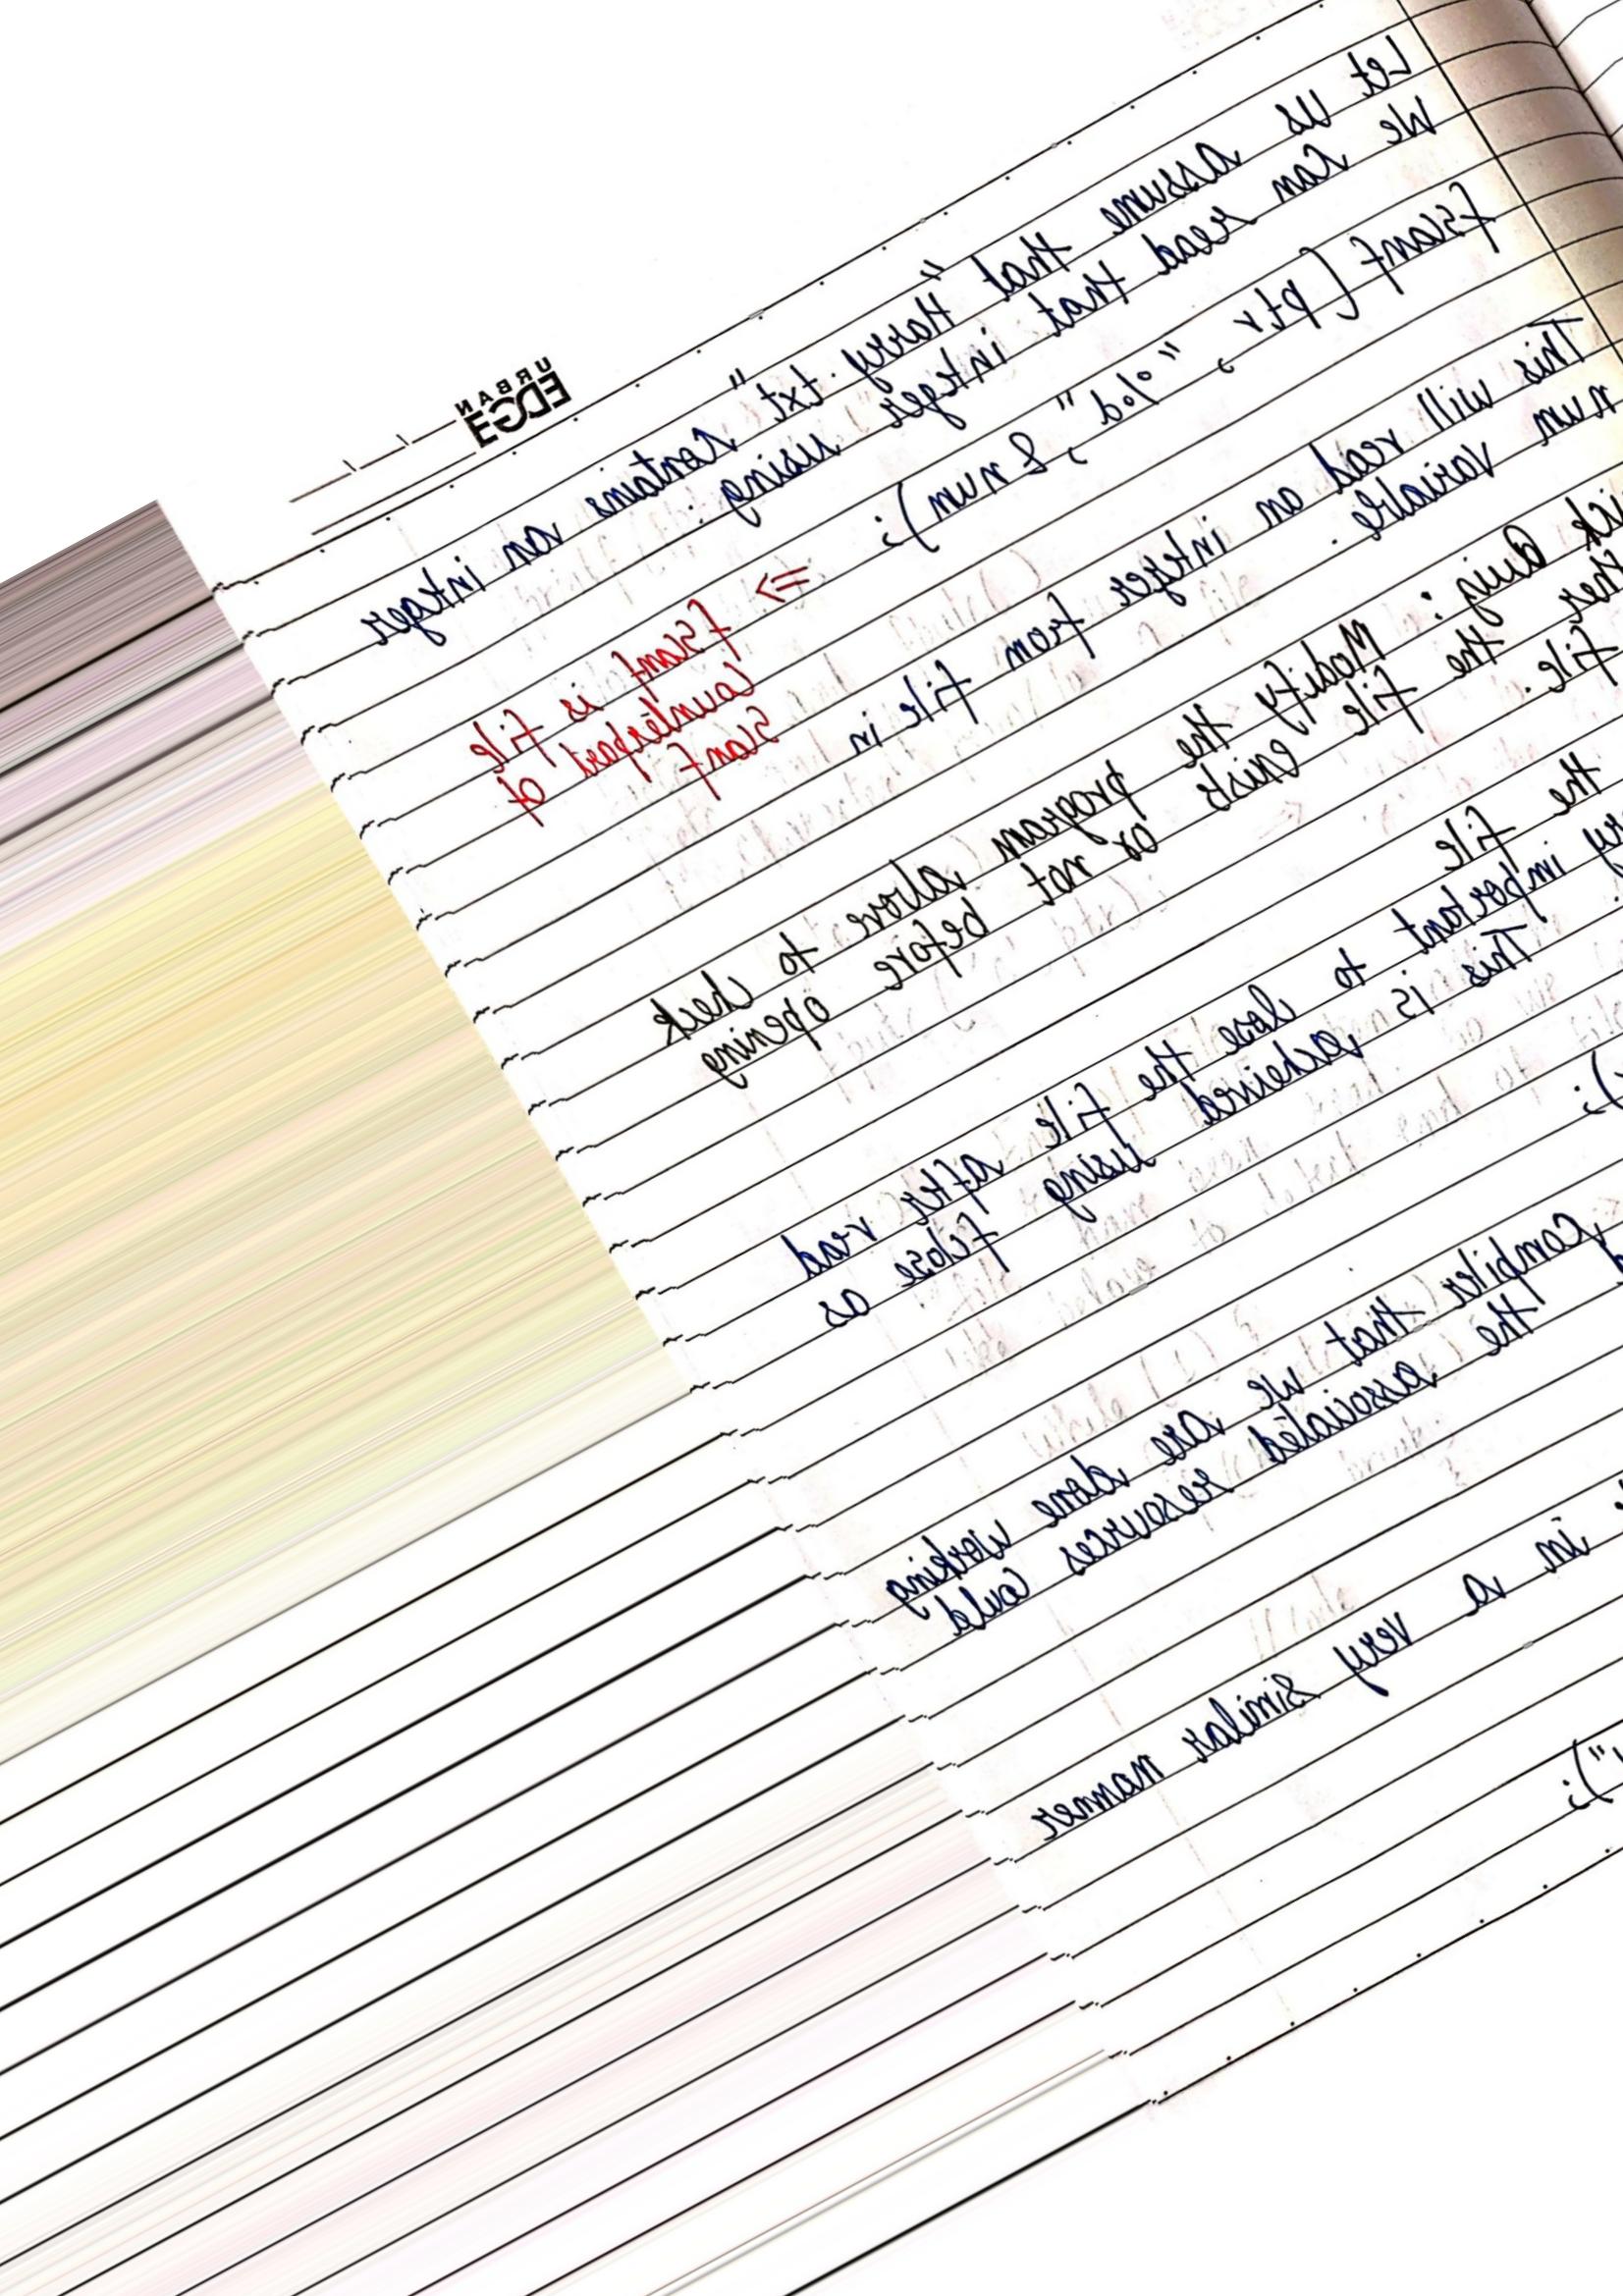 URBAN
EDGE
Let us assume that "Harry.txt" contains an integer
We can read that integer using :
fscanf (ptr, "%d", &num); => fscanf is file
counterpart of
scanf
This will read an integer from file in
num variable.
Quiz: Modify the program above to check
the file exists or not before opening
file.
the file
important to close the file after read
This is acheived using fclose as
);
compiler that we are done working
the associated resources could
in a very similar manner
");